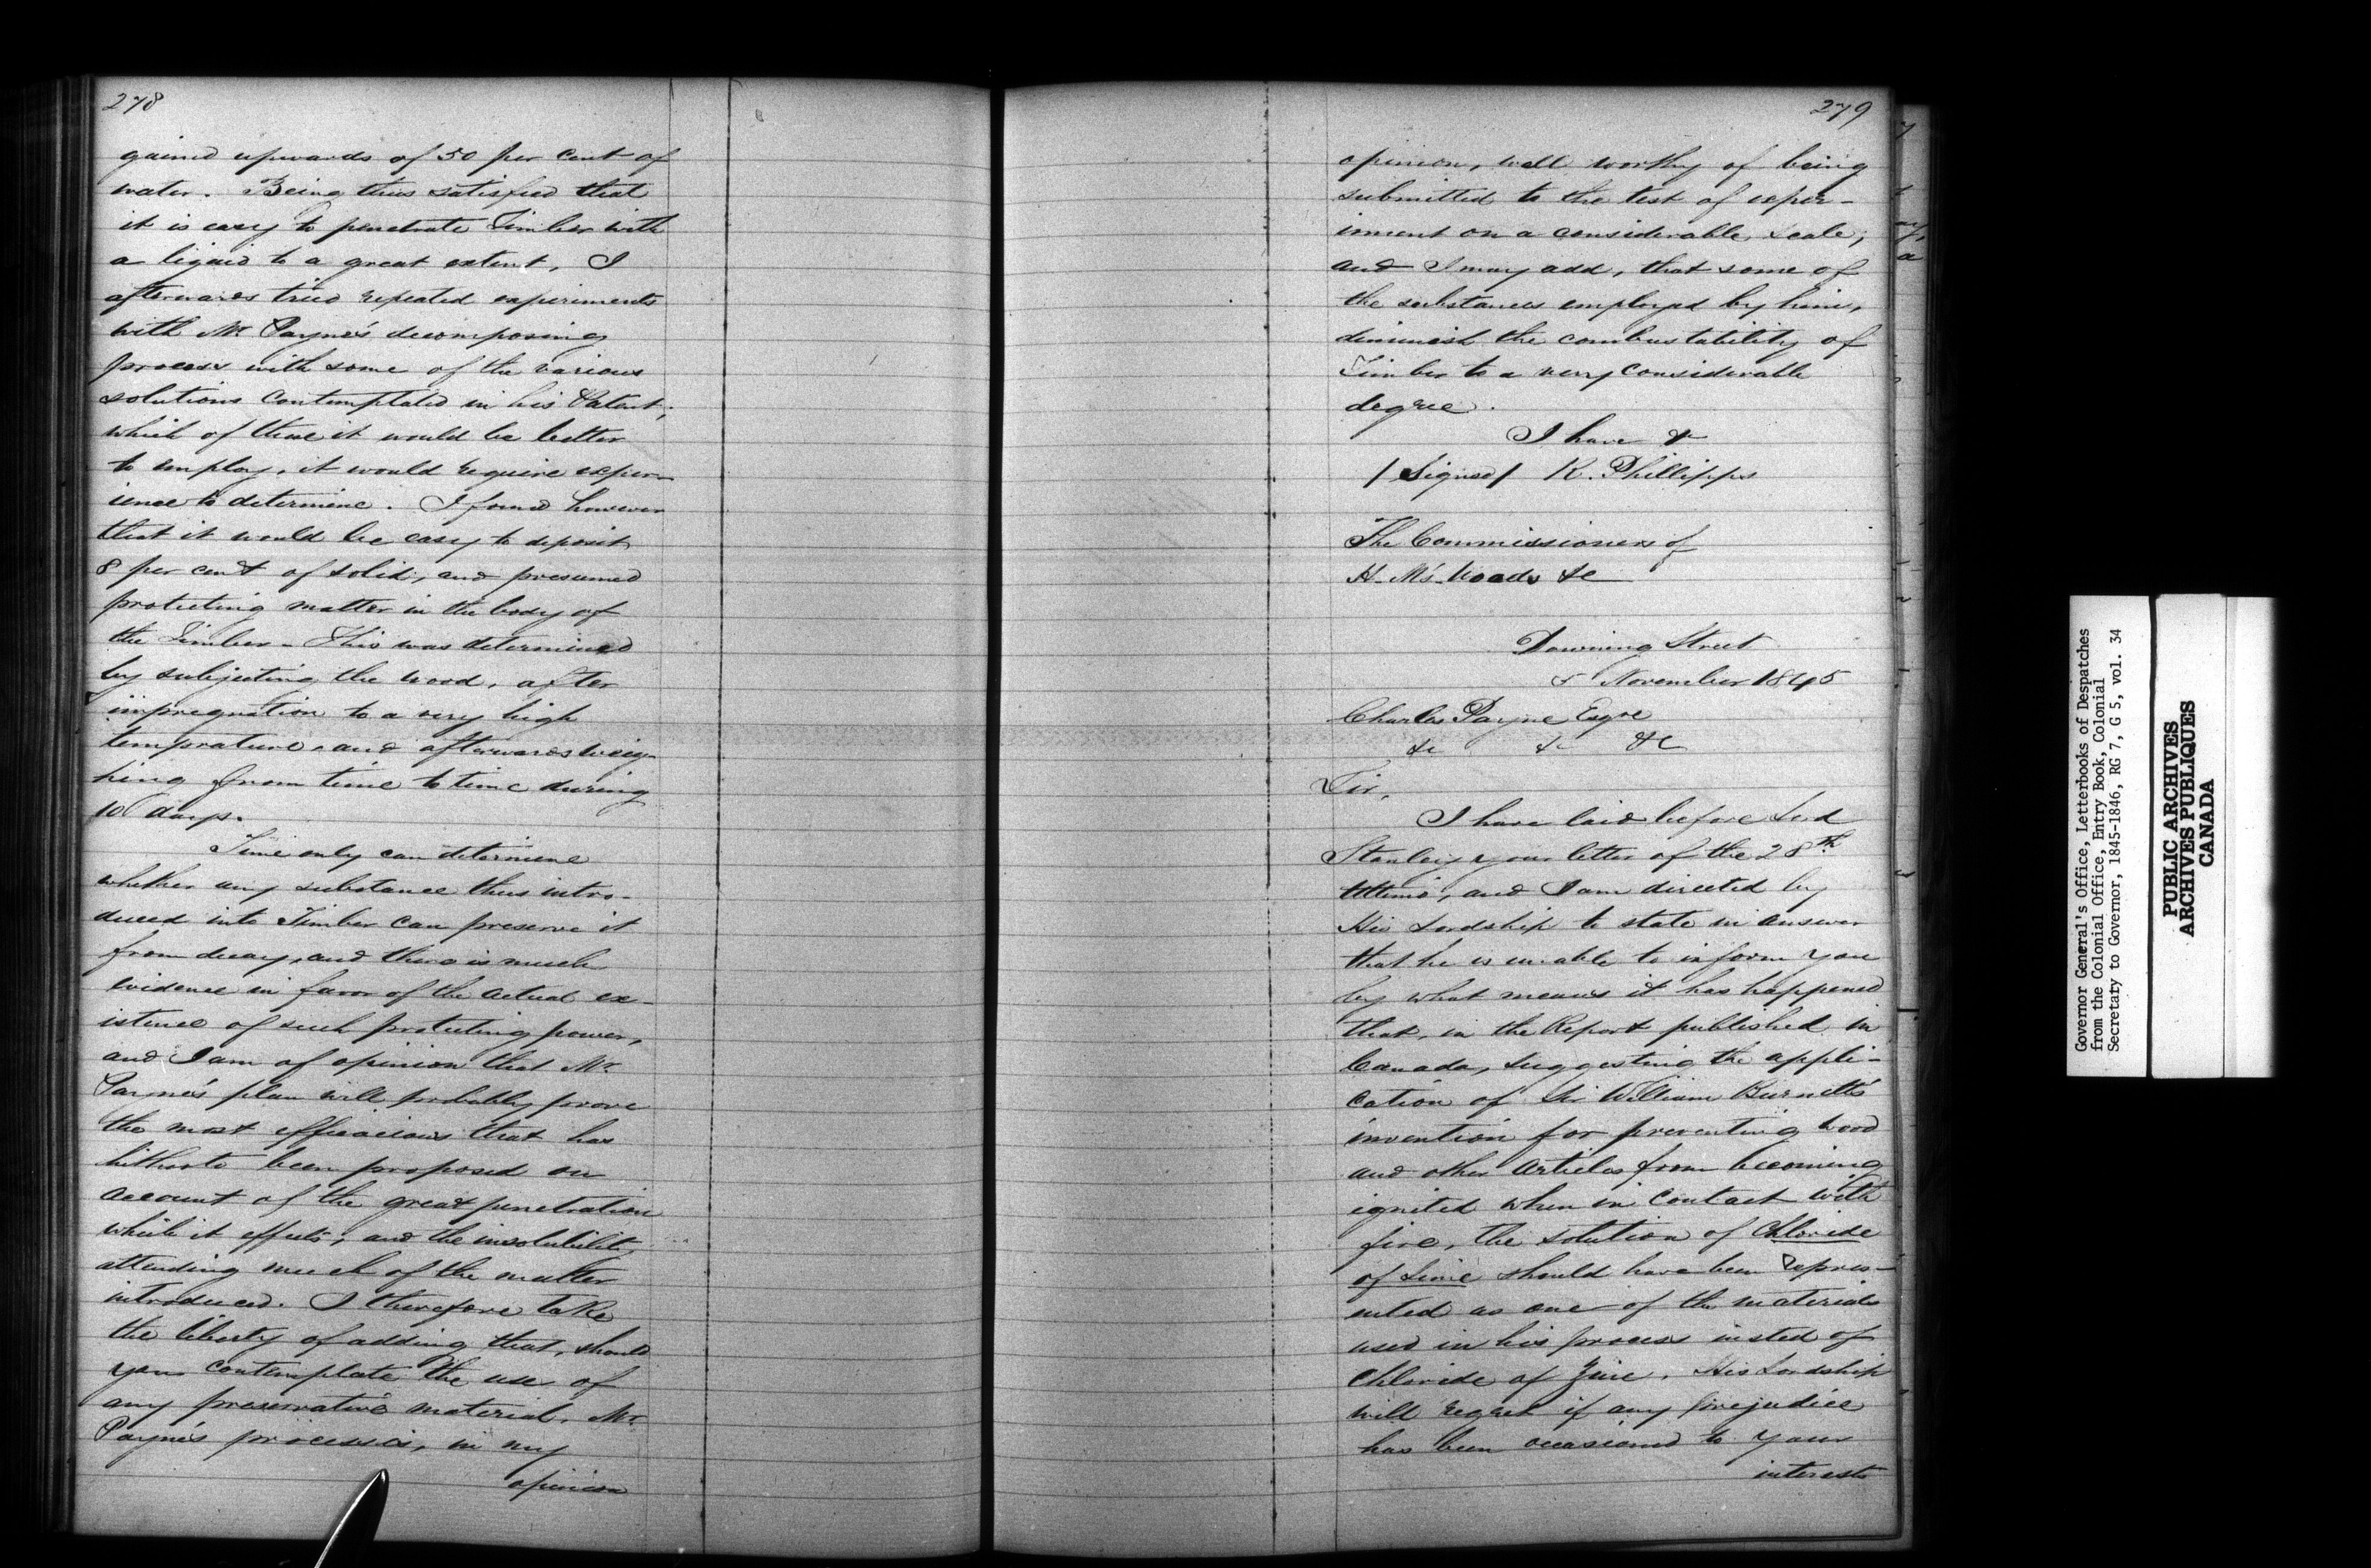 278
gained upwards of 50 per cent of
water. Being thus satisfied that
it is easy to penetrate Timber with
a liquid to a great extent, I
afterwards tried repeated experiments
with Mr Payne's decomposing
process with some of the various
solutions contemplated in his Patent;
which of these it would be better
to employ, it would require exper-
ience to determine. I found however
that it would be easy to deposit
8 per cent of solid, and presumed
protecting matter in the body of
the Timber - This was determined
by subjecting the wood, after
impregnation to a very high
temprature, and afterwards weig-
hing from time to time during
10 days.
Time only can determine
whether any substance thus intro-
duced into Timber can preserve it
from decay, and there is much
evidence in favor of the actual ex-
istence of such protecting power,
and I am of opinion that Mr
Payne's plan will probably prove
the most efficacious that has
hitherto been proposed on
account of the great penetration
which it effects, and the insolubility
attending much of the matter
introduced. I therefore take
the liberty of adding that, should
you contemplate the use of
any preservative material, Mr
Payne's processes, in my
opinion
279
opinion, well worthy of being
submitted to the test of exper-
iment on a considerable scale;
and I may add, that some of
the substances employed by him,
diminish the combustability of
Timber to a very considerable
degree.
I have &
/Signed/ R. Phillipps
The Commissioners of
H. M's. Woods &c
Downing Street
5 November 1845
Charles Payne Esqre
&c &c &c
Sir,
I have laid before Lord
Stanley your letter of the 28th
Ultimo, and I am directed by
His Lordship to state in answer
that he is unable to inform you
by what means it has happened
that, in the Report published in
Canada, suggesting the appli-
cation of Sir William Burnett's
invention for preventing wood
and other articles from becoming
ignited when in contact with
fire, the solution of Chloride
of Lime should have been repres-
ented as one of the materials
used in his process insted of
Chloride of Zinc. His Lordship
will regret if any prejudice
has been occasioned to your
interests
Governor General's Office, Letterbooks of Despatches
from the Colonial Office, Entry Book, Colonial
Secretary to Governor, 1845-1846, RG 7, G 5, vol. 34
PUBLIC ARCHIVES
ARCHIVES PUBLIQUES
CANADA